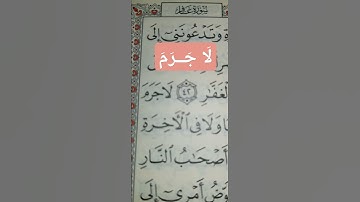 سورة غافر
وَتَدْعُونَنِي إِلَى
لَا جَرَمَ
الْغَفَّارِ ٤٢ لَا جَرَمَ
وَلَا فِي الْآخِرَةِ
أَصْحَابُ النَّارِ
أَمْرِي إِلَى